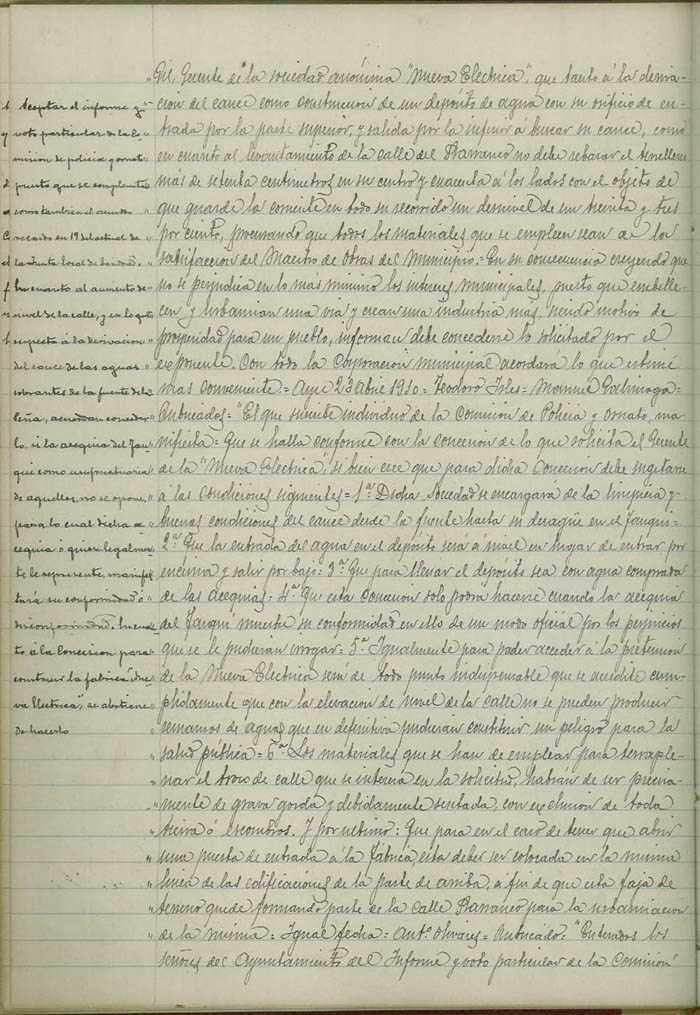 Gil, Gerente de la sociedad anónima "Nueva Electrica", que tanto á la deriva-
cion del cauce como construccion de un depósito de agua con su orificio de en-
trada por la parte superior, y salida por la inferior á buscar su cauce, como
en cuanto al levantamiento de la calle del Barranco no debe rebasar el terraplene
más de setenta centimetros en su centro y cuarenta á los lados con el objeto de
que guarde la corriente en todo su recorrido un desnivel de un treinta y tres
por ciento, procurando que todos los materiales que se empleen sean a la
satisfaccion del Maestro de Obras del Municipio.= En su consecuencia creyendo que
no se perjudica en lo más minimo los intereses municipales, puesto que embelle-
cen y urbanizan una via y crean una industria más, siendo motivo de
prosperidad para un pueblo, informan debe concederse lo solicitado por el
exponente. Con todo la Corporacion municipal acordará lo que estime
mas conveniente = Aspe 23 Abril 1910 = Teodoro Isles = Manuel Galinaga =
Rubricados = El que suscribe individuo de la Comision de Policia y ornato, ma-
nifiesta = Que se halla conforme con la concesion de lo que solicita el Gerente
de la "Nueva Electrica", si bien cree que para dicha concesion debe sugetarse
á las condiciones siguientes = 1ª Dicha sociedad se encargará de la limpieza y
buenas condiciones del cauce desde la fuente hasta su desagüe en el Fauqui =
2ª Que la entrada del agua en el depósito será á nivel en lugar de entrar por
encima y salir por bajo = 3ª Que para llenar el depósito sea con agua comprada
de las acequias = 4ª Que esta concesion solo podrá hacerse cuando la acequia
del Fauqui muestre su conformidad en ello de un modo oficial por los perjuicios
que se le pudieran irrogar = 5ª Igualmente para poder acceder á la pretension
de la Nueva Electrica será de todo punto indispensable que se acredite cum-
plidamente que con la elevacion de nivel de la calle no se pueden producir
remansos de aguas que en definitiva pudieran constituir un peligro para la
salud pública = 6ª Los materiales que se han de emplear para terraple-
nar el trozo de calle que se interesa en la solicitud, habrán de ser precisa-
mente de grava gorda y debidamente sentada, con exclusion de toda
tierra ó escombros. Y por ultimo: Que para en el caso de tener que abrir
una puerta de entrada á la Fábrica, esta deber ser colocada en la misma
linea de las edificaciones de la parte de arriba, á fin de que esta faja de
terreno quede formando parte de la calle Barranco para la urbanizacion
de la misma = Igual fecha = Antº Olivares = Rubricado = "Enterados los
señores del Ayuntamiento del Informe y voto particular de la Comisión
Aceptar el informe y
voto particular de la Co-
mision de policia y ornato
puesto que se complenta
como tambien el acuerdo
recaido en 19 del actual de
la Junta local de Sanidad,
en cuanto al aumento de
nivel de la calle, y en lo que
respecta á la derivacion
del cauce de las aguas
sobrantes de la fuente de la
Peña, acuerdan conceder-
lo, si la acequia del Fau-
qui como usufructuaria
de aquellas, no se opone,
para lo cual dicha a-
cequia ó quien legalmen-
te le represente, manifes-
tará su conformidad ó
disconformidad. En cuan-
to á la Concesion para
construir la fabrica "Nue-
va Electrica", se abstiene
de hacerlo